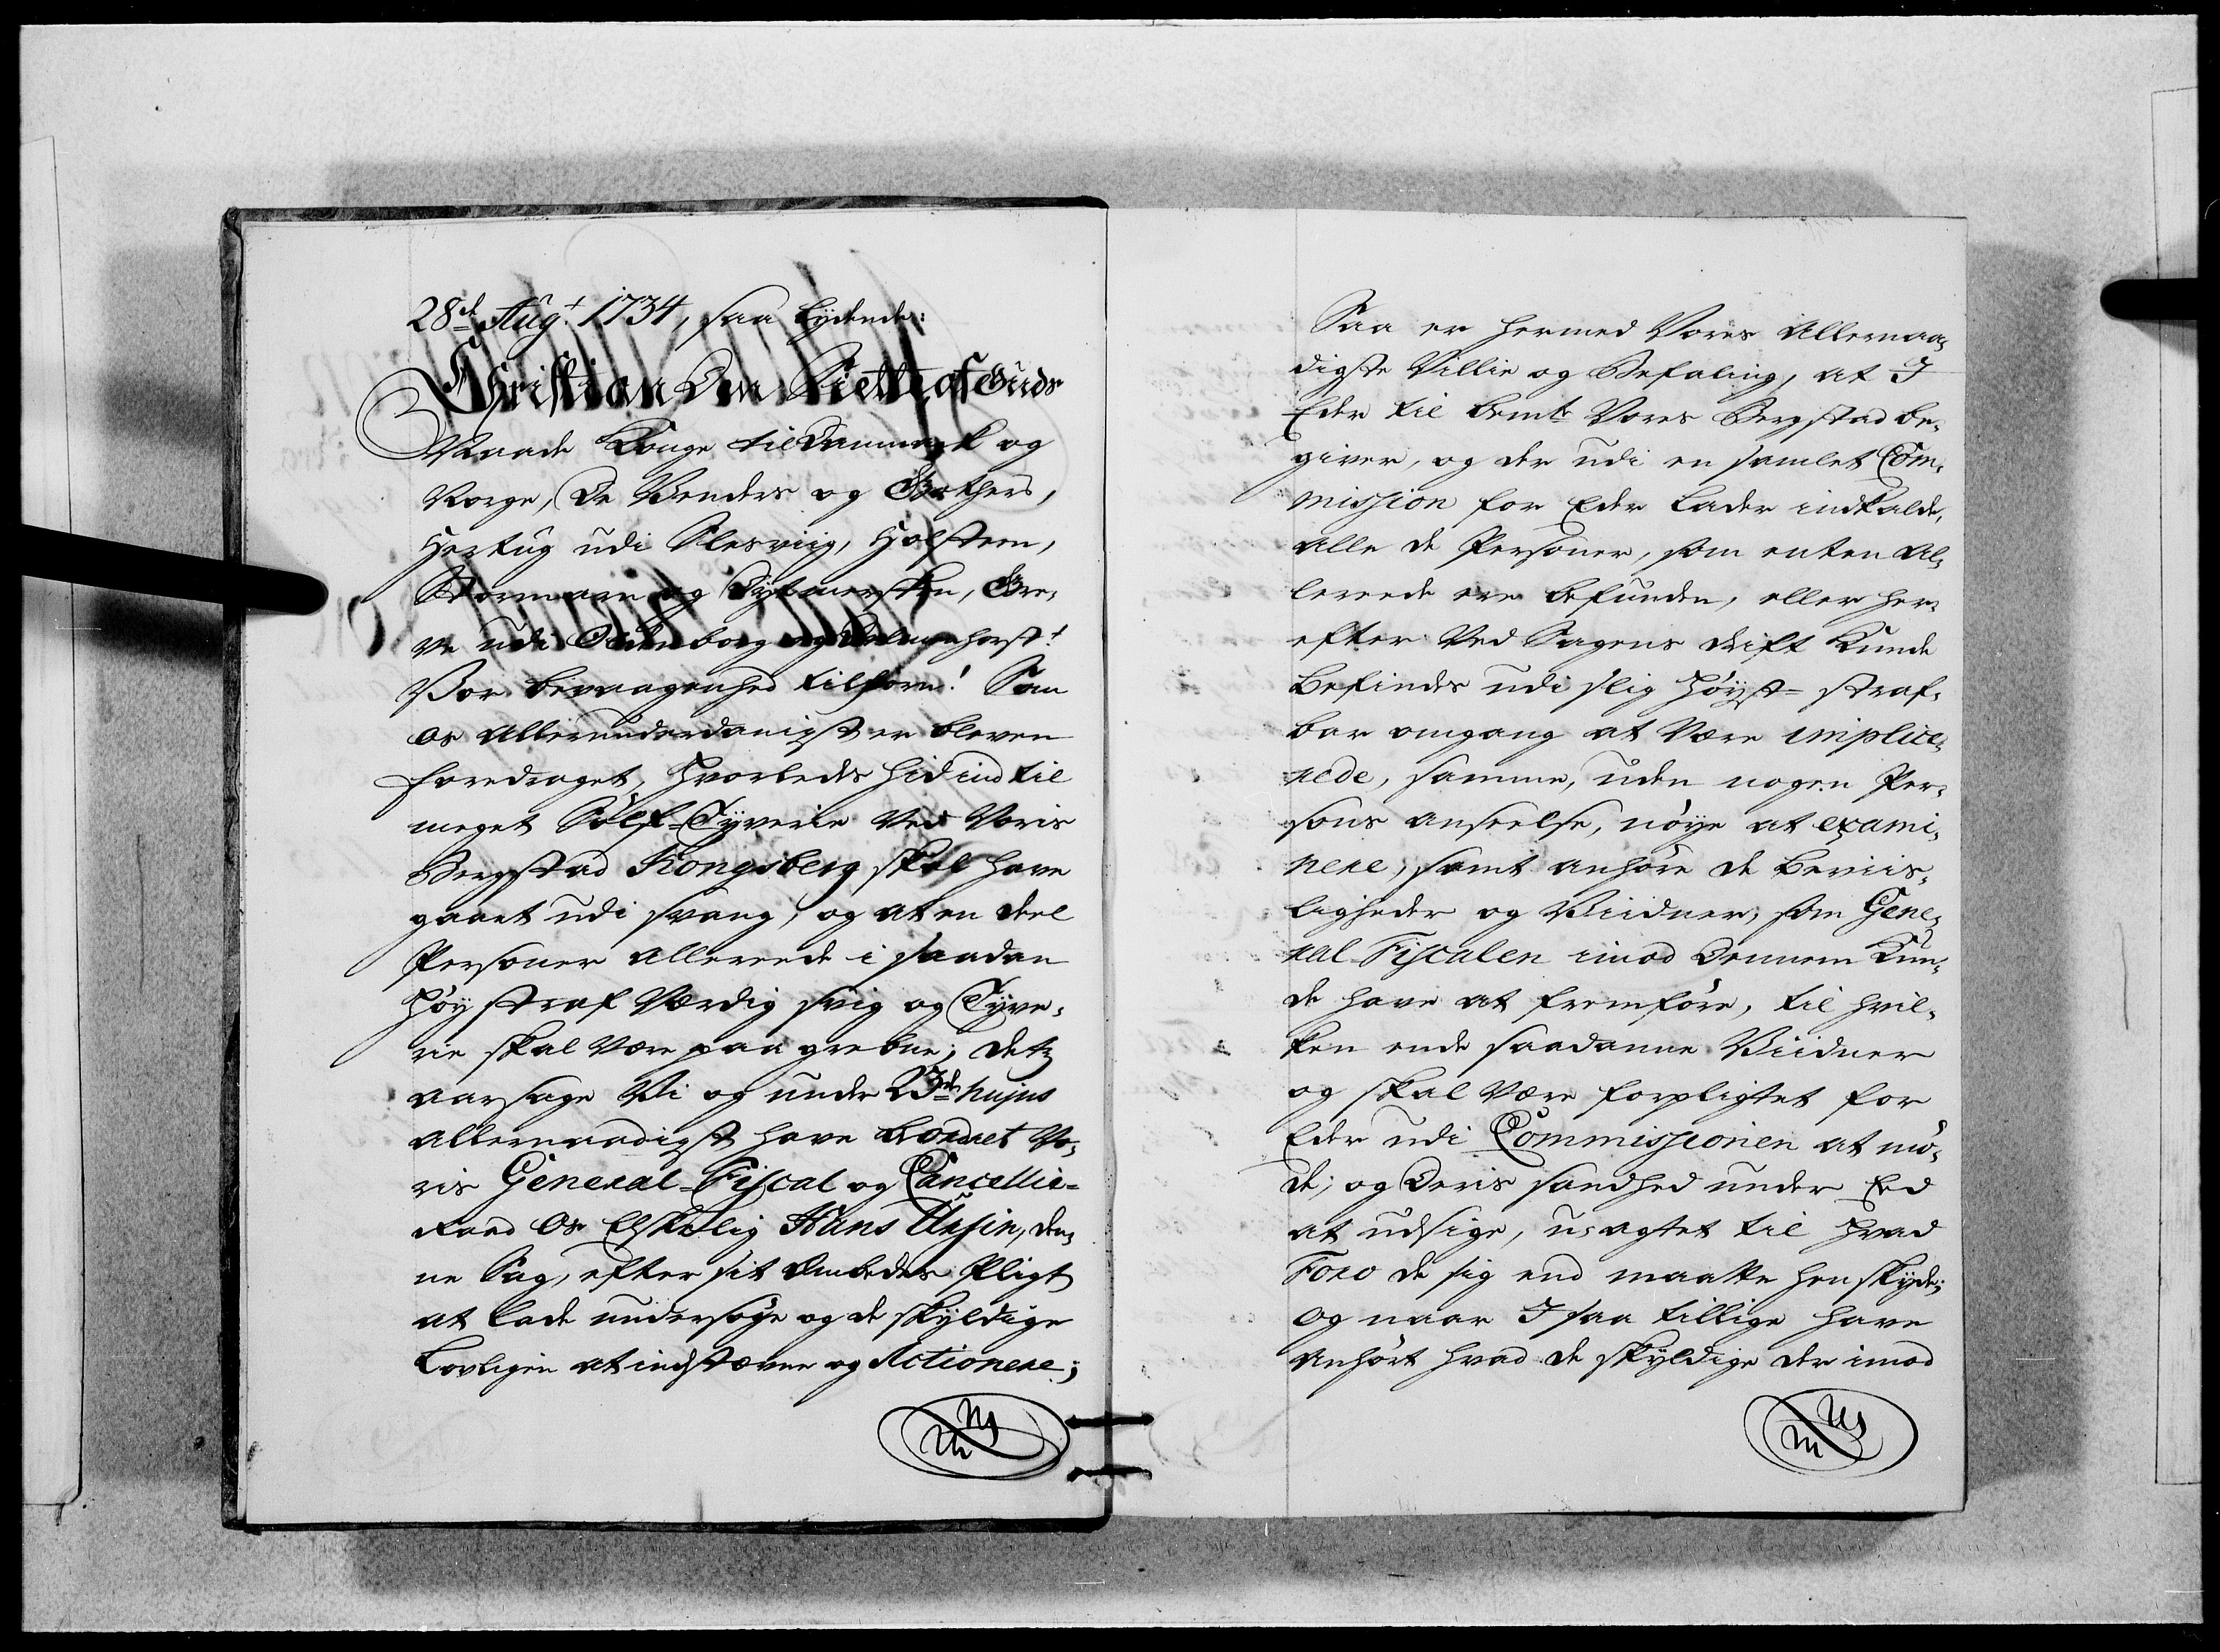 28de Aug.t 1734, saa lydende:
Christian den Siette, af Guds
Naade Konge til Danmark og
Norge, De Venders og Gothers,
Hertug udi Slesviig, Holsteen,
Stormarn og Dytmersken, Gre-
ve udi Oldenborg og Delmenhorst!
Vor bevaagenhed tilforn! Saa
Os Allerunderdanigst er bleven
foredraget, hvorledes hid ind til
meget Sølf-Tyverie ved Voris
Bergstad Kongsberg skal have
gaaet udi svang, og at en deel
Personer allereede i saadan
høy straf værdig svig og Tyve-
rie skal være paa grebne; detz
aarsage Vi og under 23de hujus
allernaadigst have beordret Vo-
ris General-Fiscal og Cancellie-
raad Os Elskelig Hans Ursin, den-
ne Sag, efter sit Embedes Pligt
at lade undersøge og de skyldige
Lovligen at indstævne og Actionere;
Saa er hermed Vores Allernaa-
digste Villie og Befaling, at I
Eder til bemte Vores Bergstad be-
giver, og der udi en samlet Com-
mission for Eder lader indkalde,
alle de Personer, som enten al-
lereede ere befunden, eller her-
efter ved Sagens drift kunde
befindes udi slig høyst-straf-
bar omgang at være implice-
rede, samme, uden nogen Per-
sons anseelse, nøye at exami-
nere, samt anhøre de beviis-
ligheder og Viidner, som Gene-
ral-Fiscalen imod dennem kun-
de have at fremføre, til hvil-
ken ende saadanne Viidner
og skal være forpligtet for
Eder udi Commissionen at mø-
de, og deris sandhed under Eed
at udsige, uagtet til hvad
Foro de sig end maatte henskyde;
og naar I saa tillige have
anhørt hvad de skyldige der imod